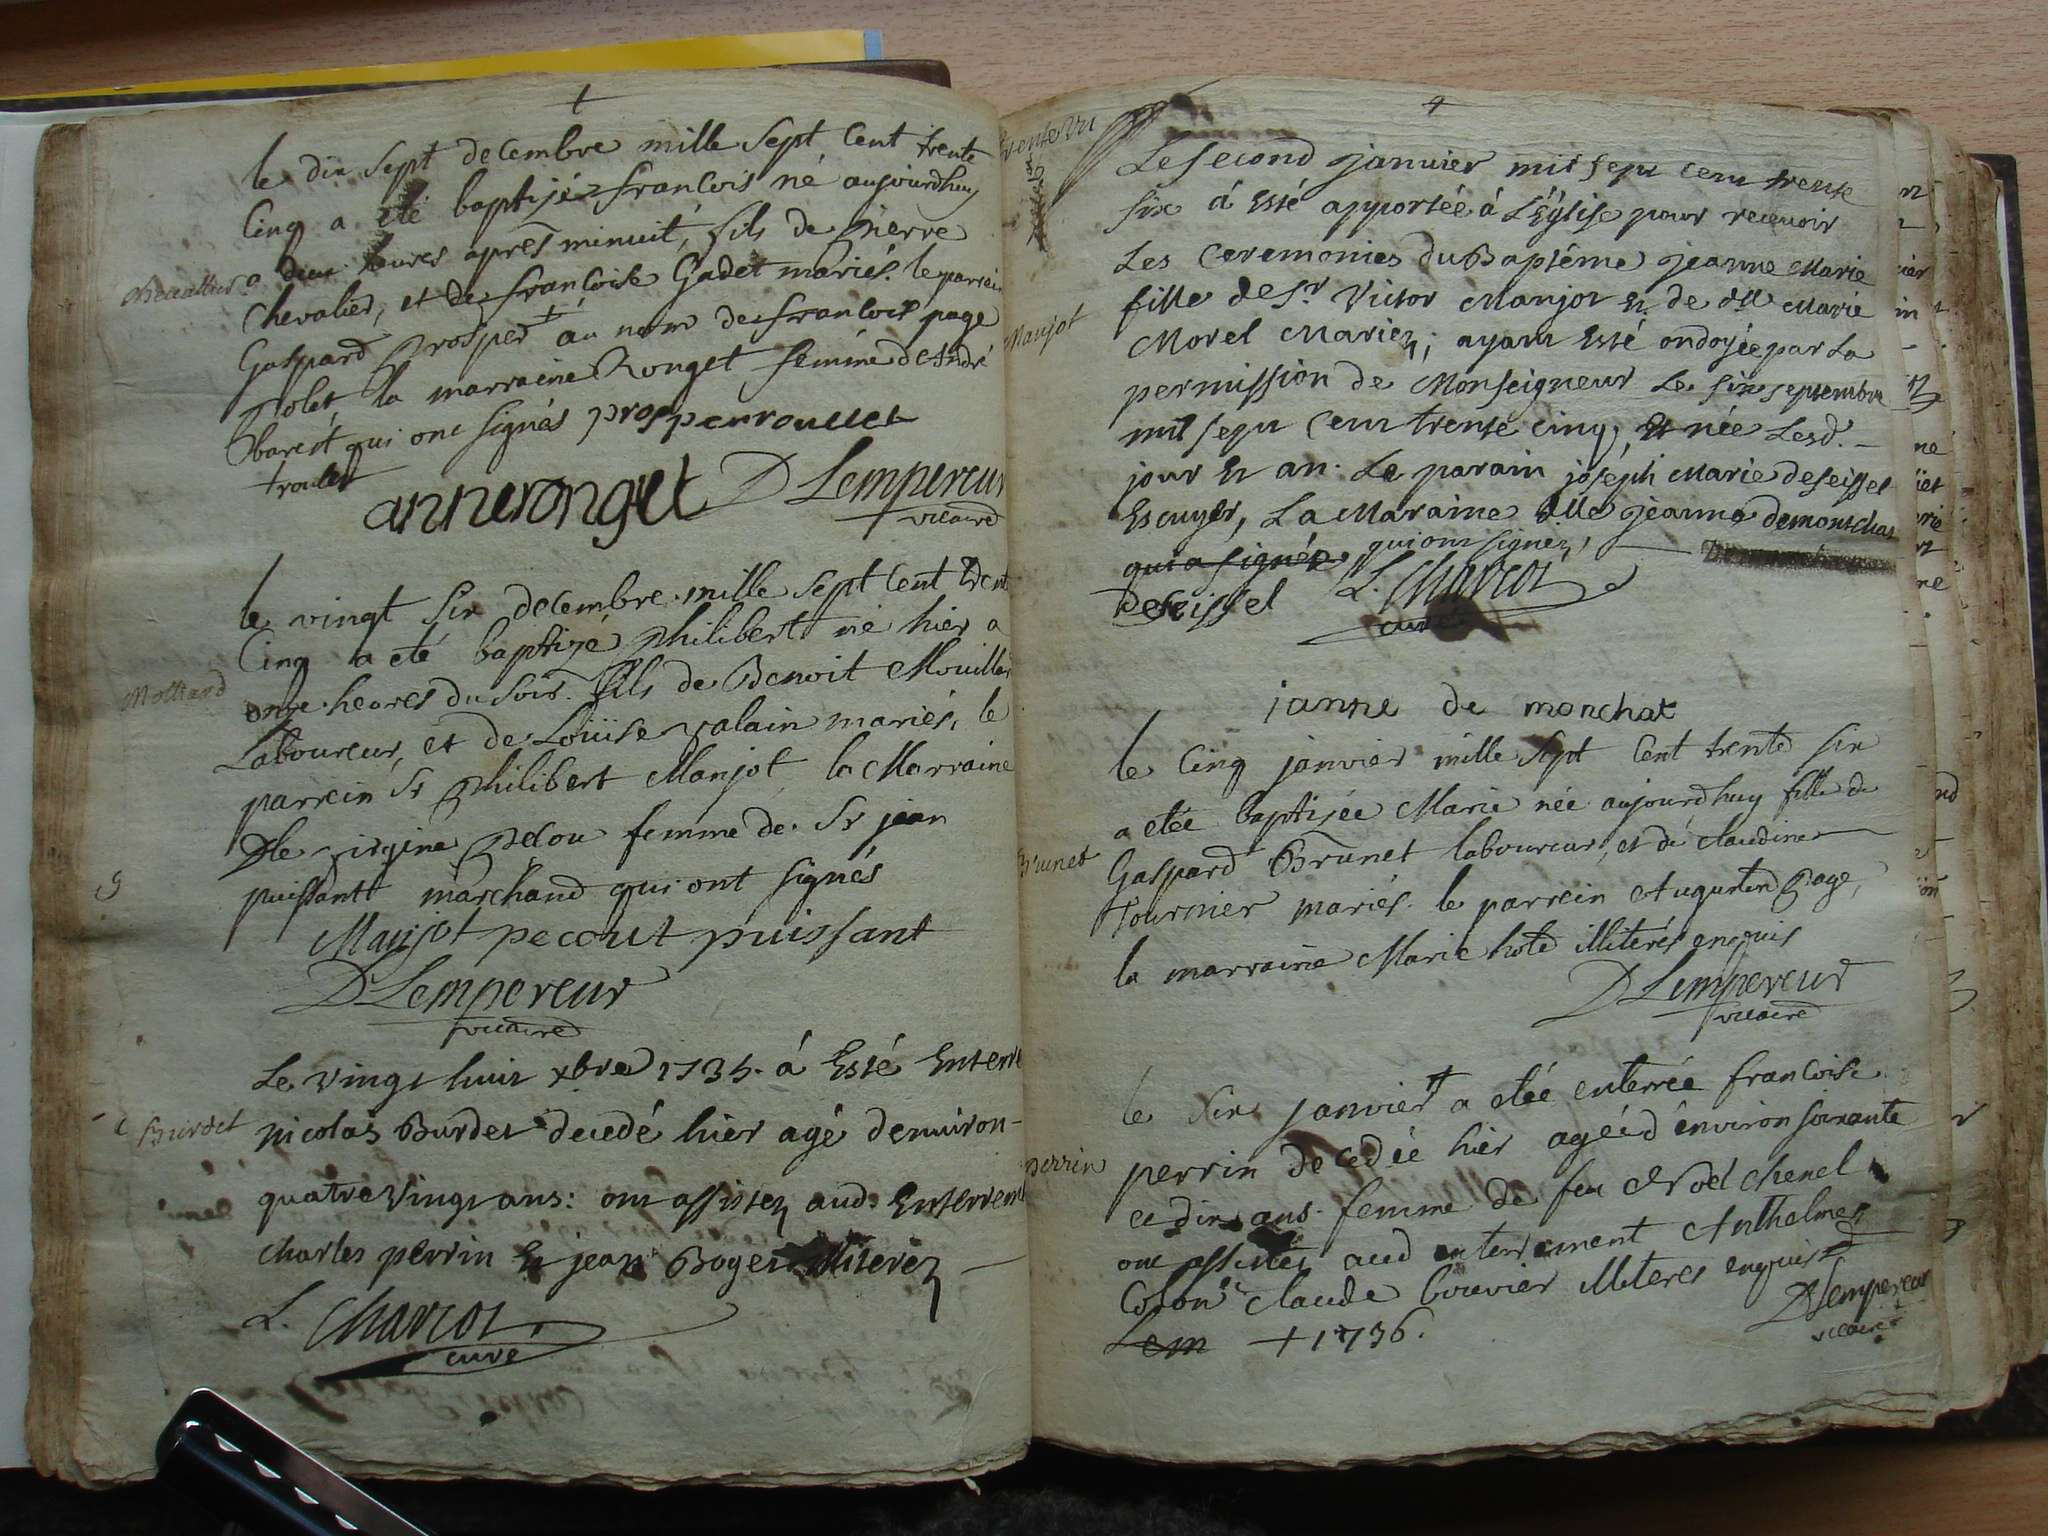 le dix sept decembre mille sept Cent trente
Cinq a eté baptisé francois né aujourdhuy
Chevallier
a deux heures apres minuit, fils de pierre
Chevalier, et de francoise Gadet mariés. le parrein
Gaspard Prosper + au nom de francois page
la marraine Ronget femme de André
Obaret qui ont signés prosperroullet
troulet
anneronget D Lempereur
vicaire
le vingt six decembre mille sept Cent trent
Cinq a eté baptizé philibert né hier a
Molliard
onze heures du soir. fils de Benoit Mouillar
Laboureur, et de Loüise valain mariés, le
parrein Sr philibert Manjot, la Marraine
Dlle virgine femme de Sr jean
puissantt marchand qui ont signés
Manjot pecout puissant
D Lempereur
vicaire
Le vingt huit xbre 1735. á Esté Enterré
Burdet
nicolas Burdet decedé hier agé denuiron
quatre vingt ans: ont assistez aud. Enterrem
charles perrin Et jean Boget illiterez
L. Charcot
curé
trente six
Le second janvier mil sept cent trente
six á Esté apportée á L'Eglise pour recevoir
Les Ceremonies du Baptéme jeanne Marie
fille de Sr Victor Manjot Et de dlle Marie
Manjot
Morel Mariez; ayant Esté ondoyée par La
permission de Monseigneur Le six septembre
mil sept Cent trente cinq, Et née Lesd.
jour Et an. Le parain joséph Marie deseissel
Escuyer, La Maraine dlle jeanne demontchat
qui a signée qui ont signéz,
deseissel L. Charcot
curé
janne de monchat
le Cinq janvier mille sept Cent trente six
a etée baptisée Marie née aujourdhuy fille de
Brunet
Gaspard Brunet laboureur, et de claudine
Tournier mariés. le parrein Augustin page,
la marraine Marie hote illiterés enquis
D Lempereur
vicaire
le six janvier + a etée enterrée francoise
perrin
perrin decedée hier agée d'environ soixante
et dix ans. femme de feu Noel chenel
ont assistés aud enterrement Anthelme
Colon et claude bouvier illiteres enquis
D Lempereur
Lem + 1736.
vicaire